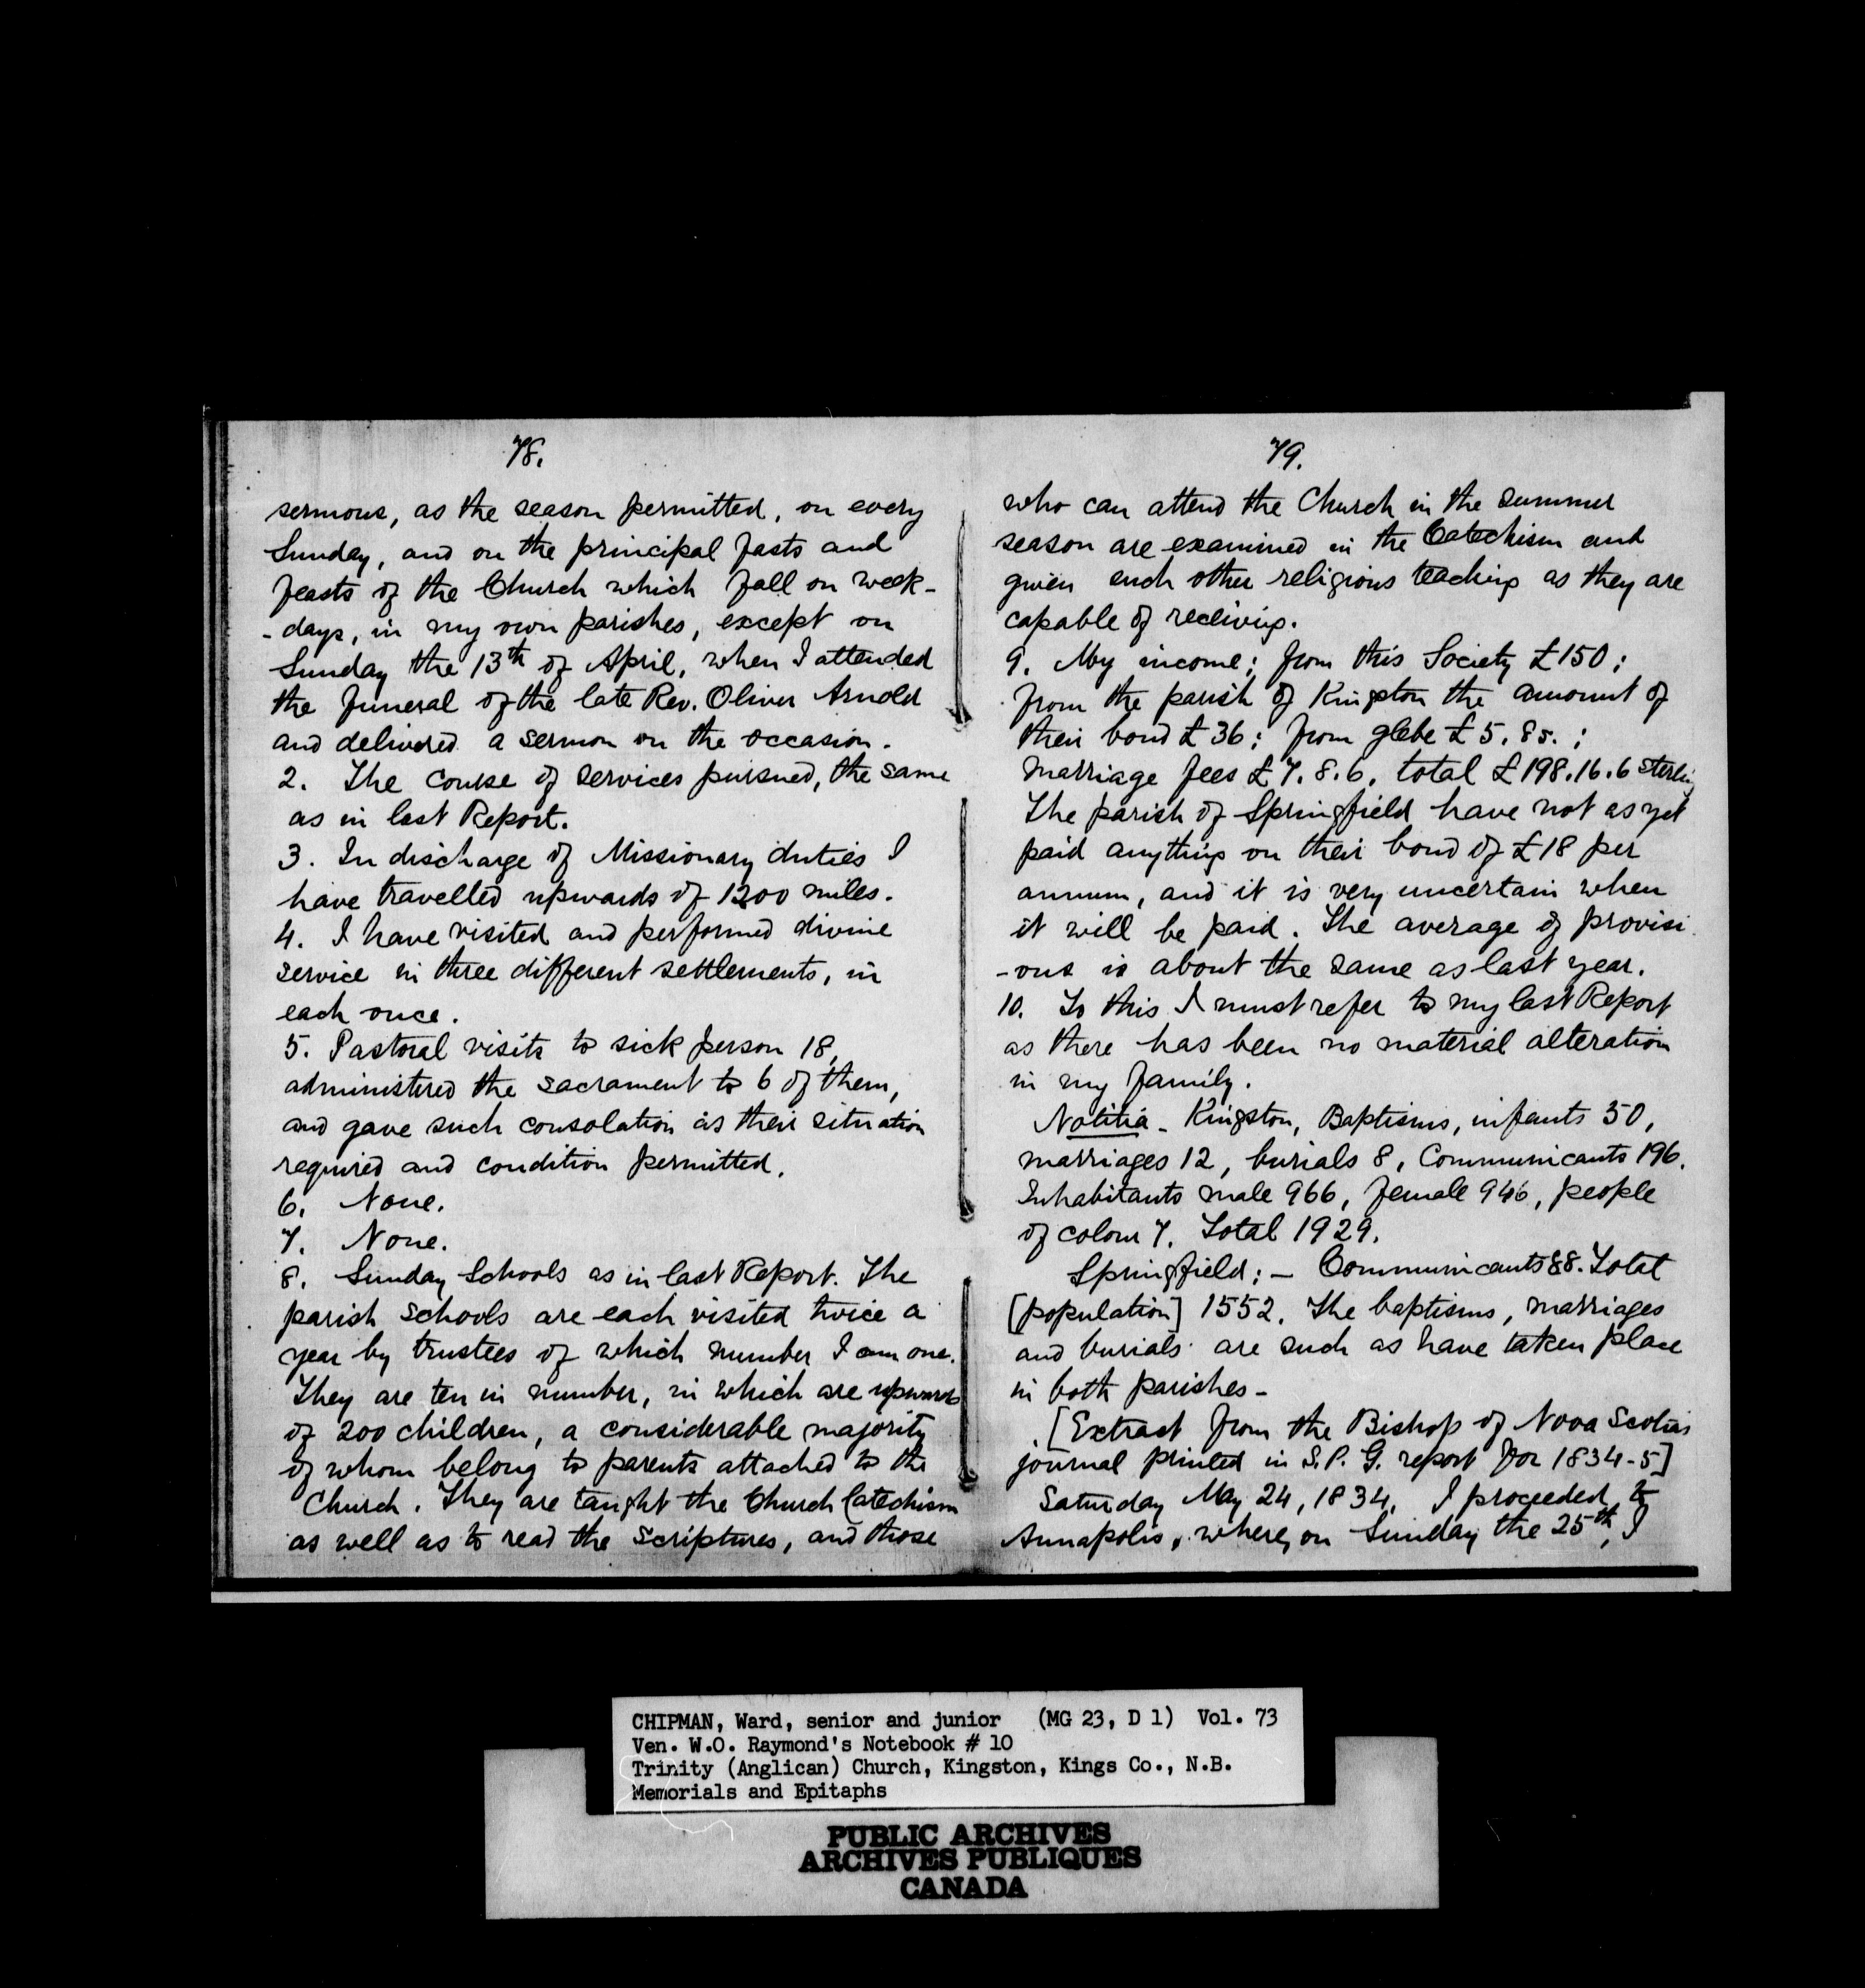 78.
sermons, as the season permitted, on every
Sunday, and on the principal fasts and
feasts of the Church which fall on week-
-days, in my own parishes, except on
Sunday the 13th of April, when I attended
the funeral of the late Rev. Oliver Arnold
and delivered a sermon on the occasion.
2. The course of services pursued, the same
as in last Report.
3. In discharge of Missionary duties I
have travelled upwards of 1200 miles.
4. I have visited and performed divine
service in three different settlements, in
each once.
5. Pastoral visits to sick person 18,
administered the sacrament to 6 of them,
and gave such consolation as their situation
required and condition permitted.
6. None.
7. None.
8. Sunday Schools as in last Report. The
parish schools are each visited twice a
year by trustees of which number I am one.
They are ten in number, in which are upwards
of 200 children, a considerable majority
of whom belong to parents attached to the
Church. They are taught the Church Catechism
as well as to read the Scriptures, and those
79.
who can attend the Church in the summer
season are examined in the Catechism and
given such other religious teaching as they are
capable of receiving.
9. My income; from this Society £150;
from the parish of Kingston the amount of
their bond £36; from glebe £5.8s.;
marriage fees £7.8.6, total £198.16.6 sterlin
The parish of Springfield have not as yet
paid anything on their bond of £18 per
annum, and it is very uncertain when
it will be paid. The average of provisi
-ons is about the same as last year.
10. To this I must refer to my last Report
as there has been no material alteration
in my family.
Notitia - Kingston, Baptisms, infants 50,
marriages 12, burials 8, Communicants 196.
Inhabitants male 966, female 946, people
of colour 7. Total 1929.
Springfield; - Communicants 88. Total
[population] 1552. The baptisms, marriages
and burials are such as have taken place
in both parishes -
[Extract from the Bishop of Nova Scotias
journal printed in S.P.G. report for 1834-5]
Saturday May 24, 1834, I proceeded to
Annapolis, where, on Sunday the 25th, I
CHIPMAN, Ward, senior and junior (MG 23, D 1) Vol. 73
Ven. W.O. Raymond's Notebook # 10
Trinity (Anglican) Church, Kingston, Kings Co., N.B.
Memorials and Epitaphs
PUBLIC ARCHIVES
ARCHIVES PUBLIQUES
CANADA